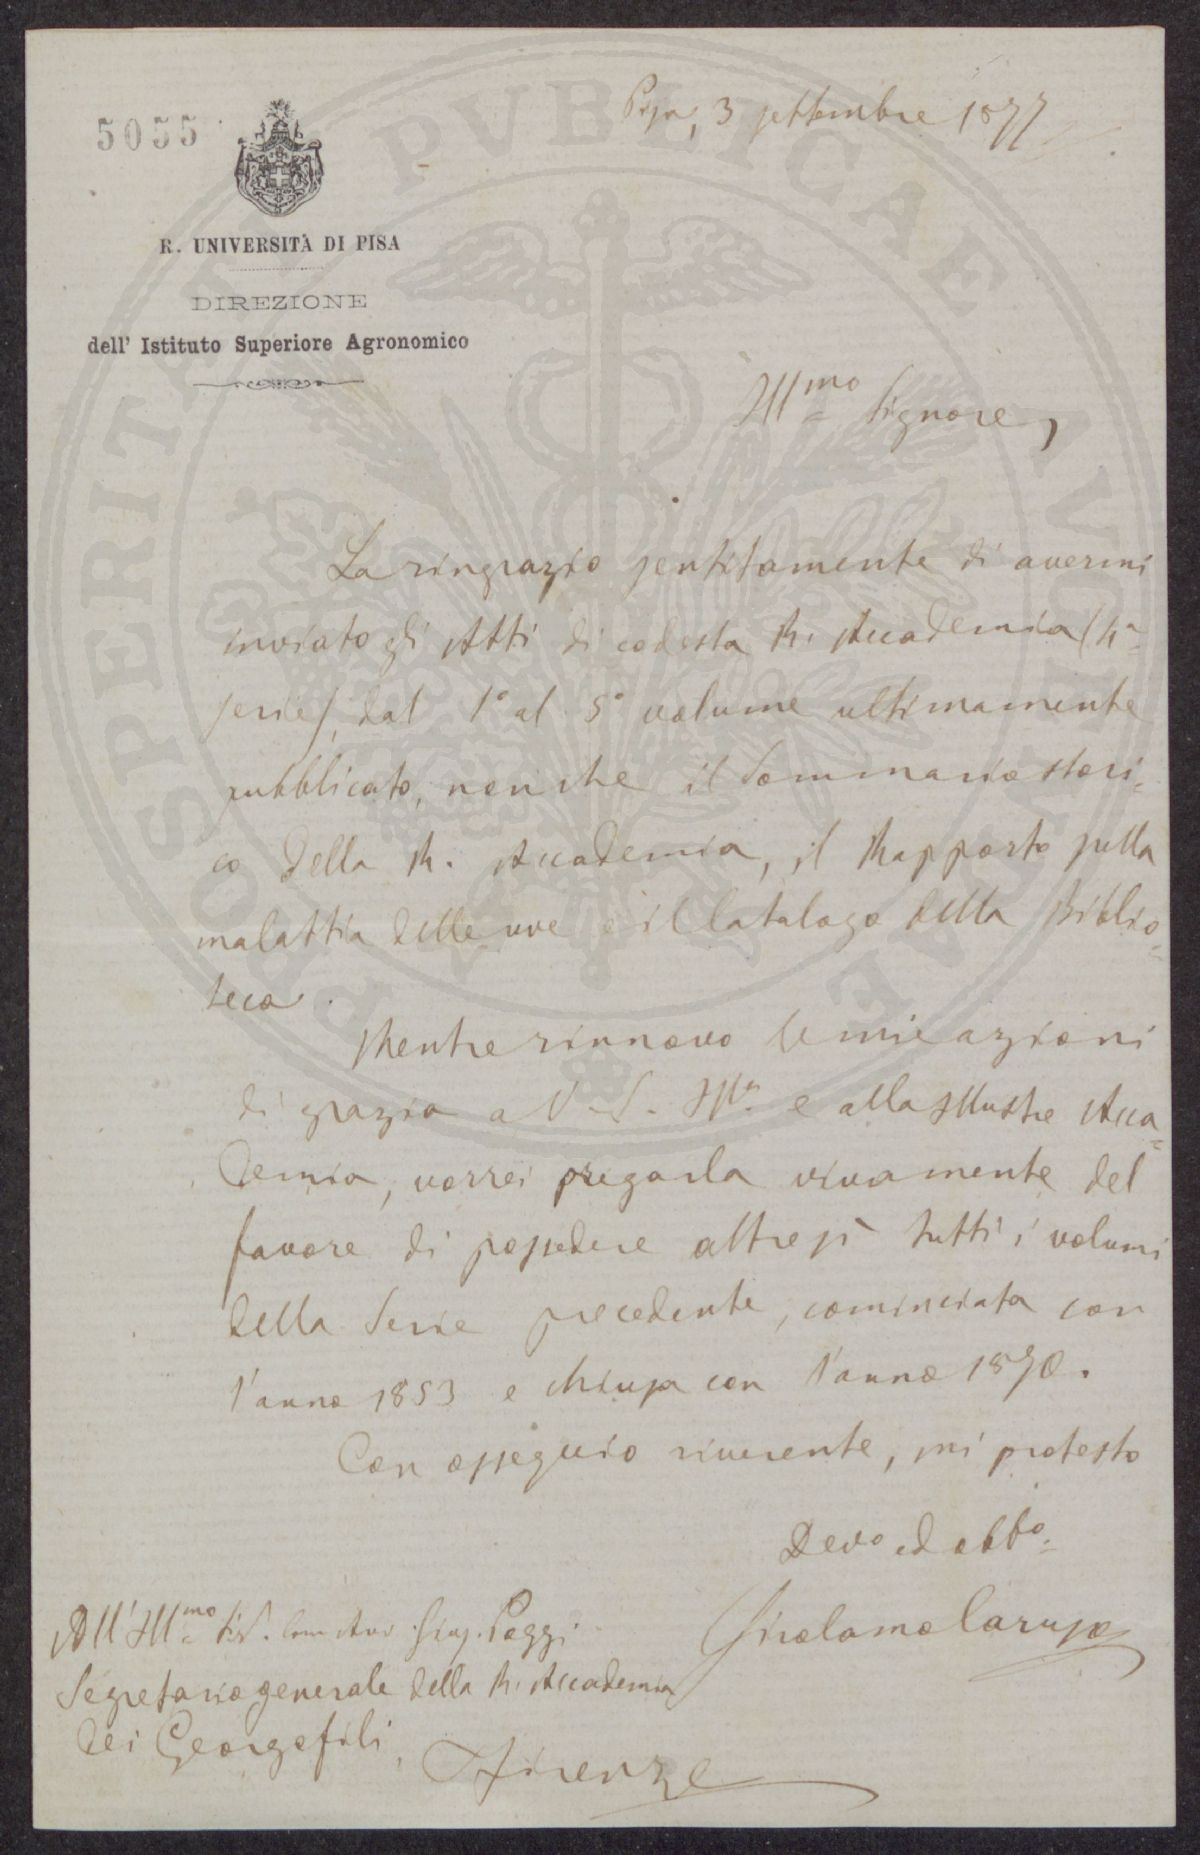 5055
Pisa, 3 settembre 1877
R. UNIVERSITÀ DI PISA
DIREZIONE
dell' Istituto Superiore Agronomico
Ill.mo Signore,
La ringrazio sentitamente di avermi
inviato gli Atti di codesta R. Accademia (4ª
serie), dal 1° al 5° volume ultimamente
pubblicato, nonchè il Sommario stori-
co della R. Accademia, il Rapporto sulla
malattia delle uve e il Catalogo della Biblio-
teca.
Mentre rinnovo le mie azioni
di grazia a V. S. Ill.a e alla Illustre Acca-
demia, vorrei pregarla vivamente del
favore di possedere altresì tutti i volumi
della Serie precedente, cominciata con
l'anno 1853 e chiusa con l'anno 1870.
Con ossequio riverente, mi protesto
Devo ed obbo.
Girolamo Caruso
All' Ill.mo Sig. Com Avv. Gius. Poggi
Segretario generale della R. Accademia
dei Georgofili,
Firenze
PROSPERITATI PVBLICAE AVGENDAE